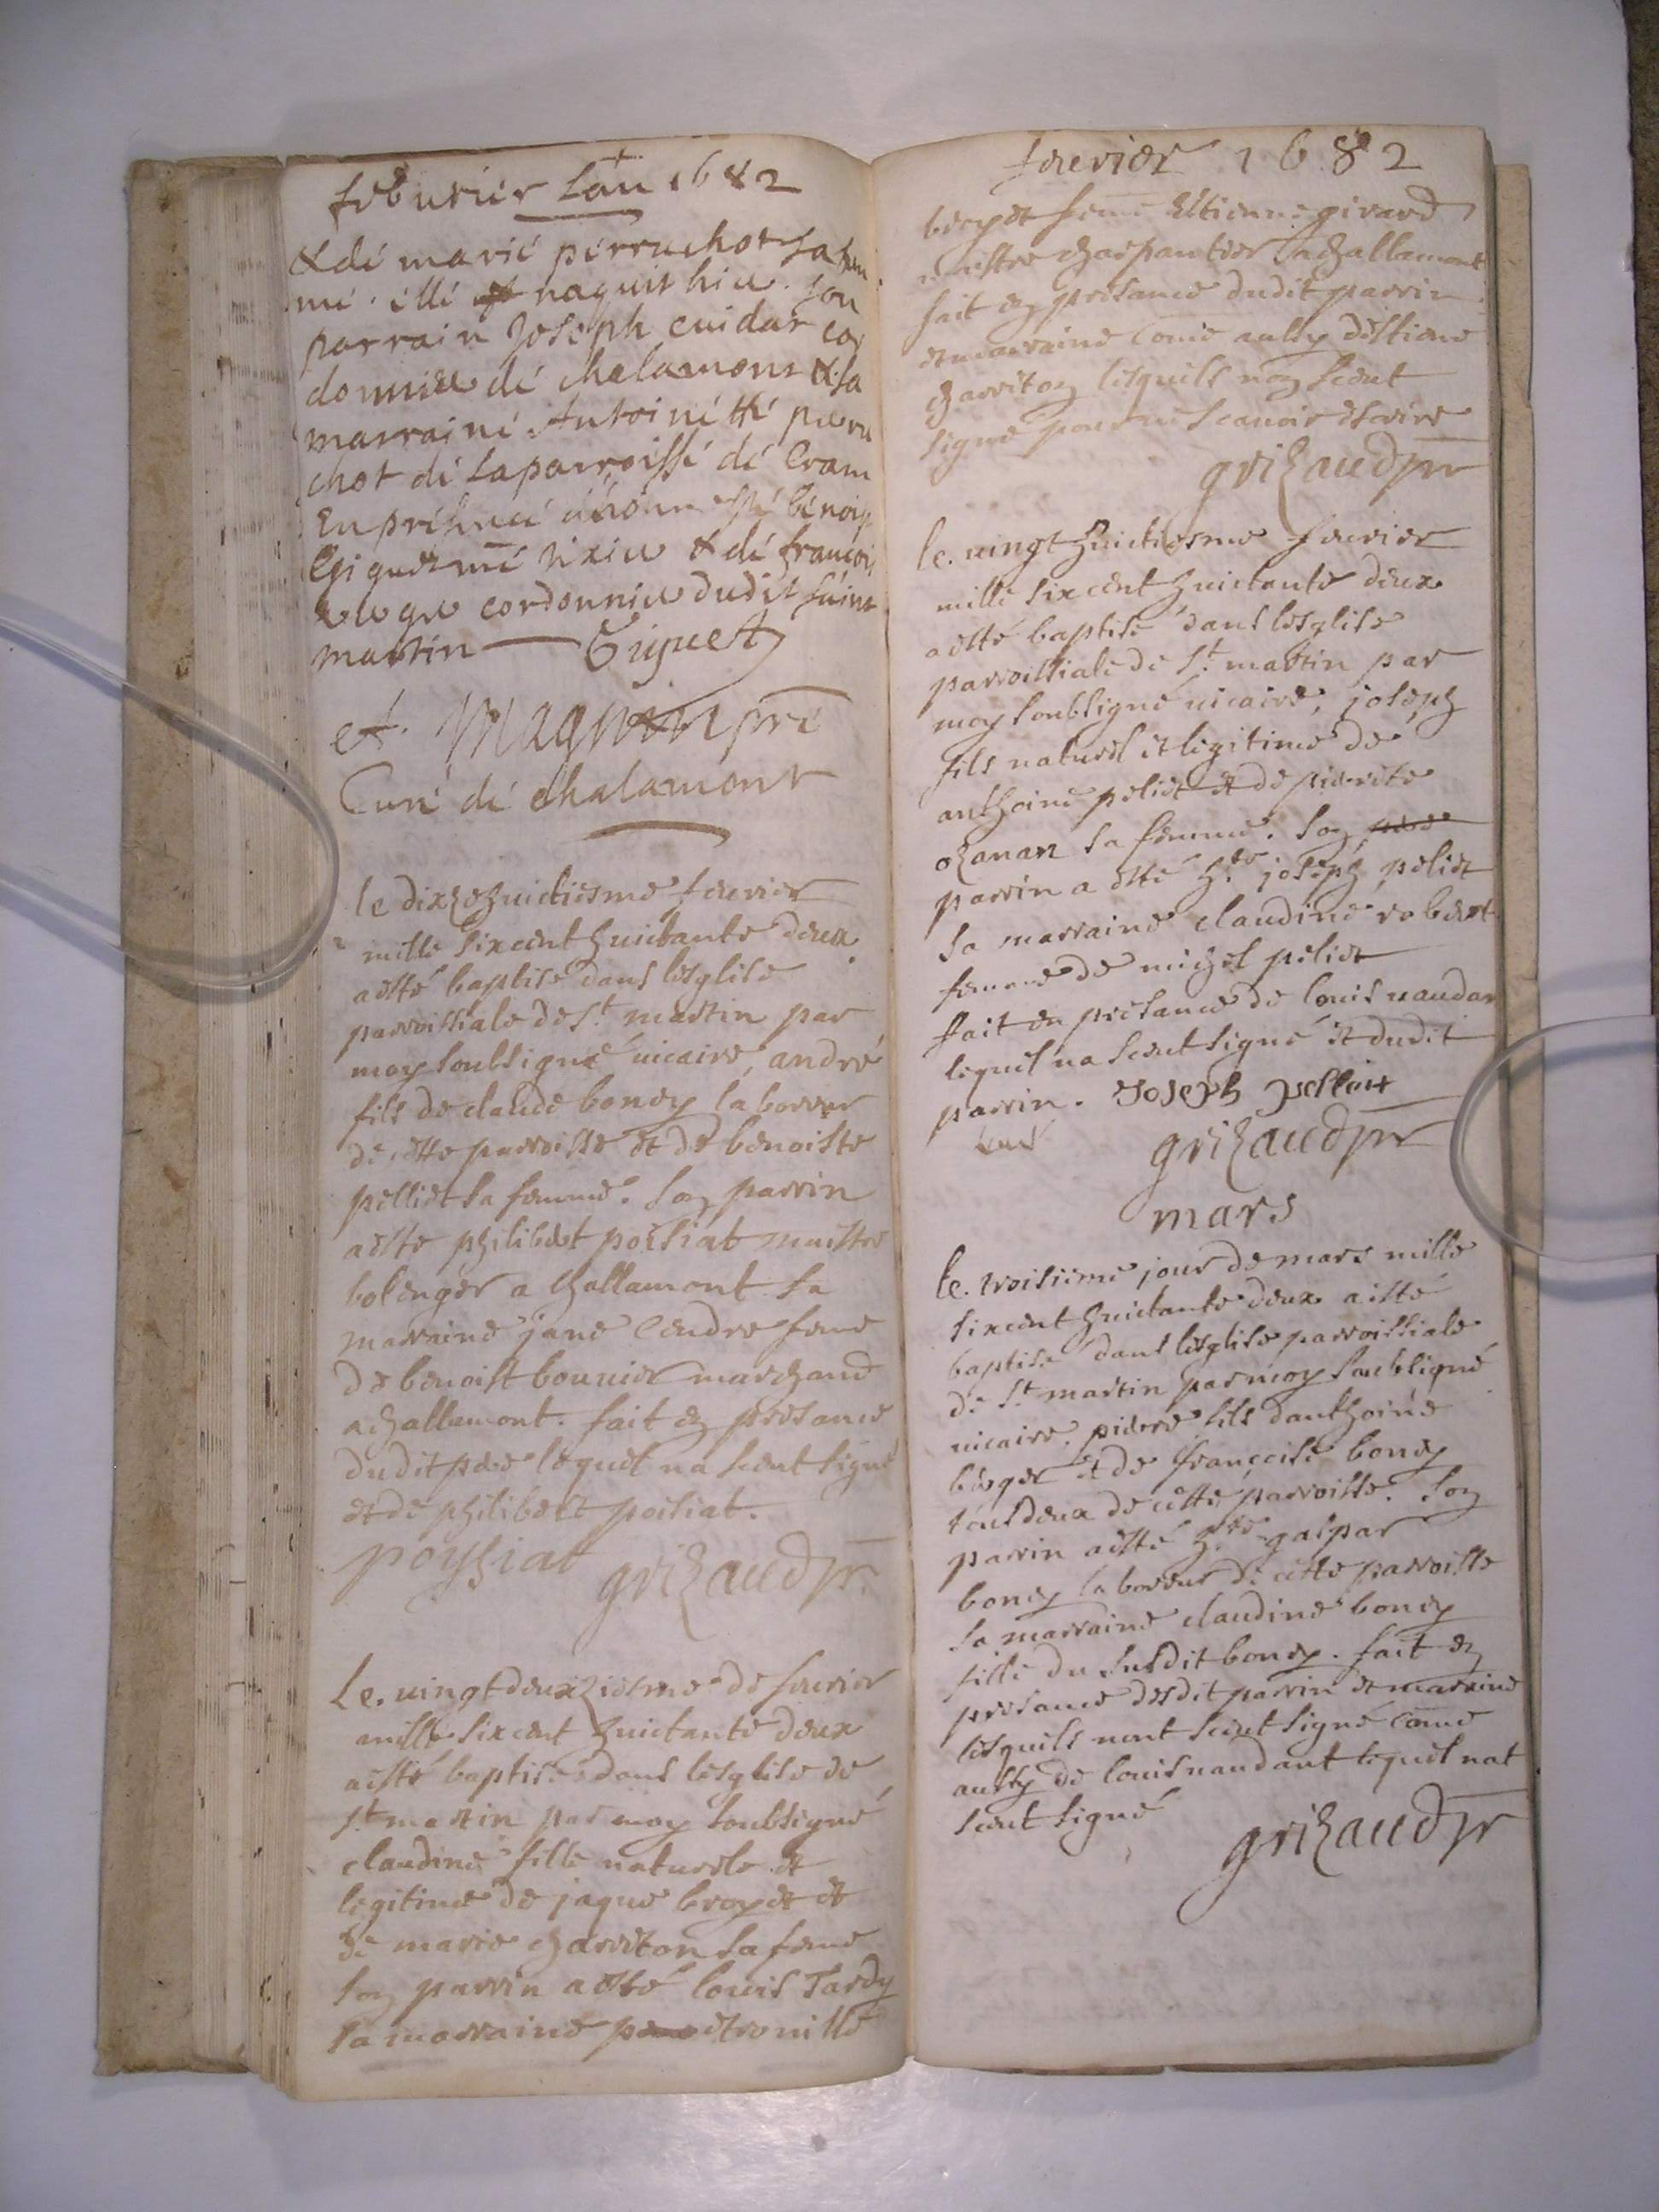 feburier Lan 1682
& de marie perruchot sa fem
me. elle naquit hier. son
parrain Joseph cuidar cor
donnier de chalamont & sa
marraine Antoinette perru
chot de la parroisse de Cram
En presence
& de françois
cordonnier dudit saint
martin Giguet
et Magnin pre
Curé de Chalamont
le dixzehuictiesme feuvrier
mille sixcent huictante deux
aesté baptisé dans lesglise
parroissiale de St martin par
moy soubsigné vicaire, andré
fils de claude boney laborer
de cette parroisse et de benoiste
pelliet sa femme. son parrin
aesté philibert poisiat maistre
bolenger a challamont sa
marraine jane Cendre feme
de benoist bouvier marchand
a challamont. fait en presance
dudit pere lequel na sceut signé
et de philibert poisiat.
poysiat grizaud pr.
Le. vingt deuxziesme de feuvrier
mille sixcent huictante deux
aesté baptisée dans lesglise de
St martin par moy soubsigné
claudine fille naturele et
legitime de jaque broyet et
de marie charreton sa feme
son parrin a esté louis Tardy
sa marraine petronille
feuvrier 1682
feme Estienne girard
maistre charpantier a challamont
fait en presance dudit parrin
et marraine Come aussy destiene
charriton lesquels non sceut
signé pour ne scavoir escrire
grizaud pr
le. vingt huictiesme feuvrier
mille sixcent huictante deux
aesté baptisé dans lesglise
parroissiale de St martin par
moy soubsigné vicaire, joseph
fils naturel et legitime de
anthoine peliet et de pierrete
ozanan sa femme. son
parrin a esté hte joseph peliet
sa marraine claudine robert
femme de michel peliet
fait en presance de louis naudan
lequel na sceut signé et dudit
parrin. Joseph pelloit
grizaud pr
mars
le. troisieme jour de mars mille
sixcent huictante deux aesté
baptisé dans lesglise parroissiale
de St martin par moy soubsigné
vicaire. pierre fils danthoine
berger et de françoise boney
tous deux de cette parroisse. son
parrin aesté hte gaspar
boney laboreur de cette parroisse
sa marraine claudine boney
fille du susdit boney. fait en
presance desdit parrin et marraine
lesquels nont sceut signé Come
aussy de louis naudant lequel nat
sceut signé
grizaud pr